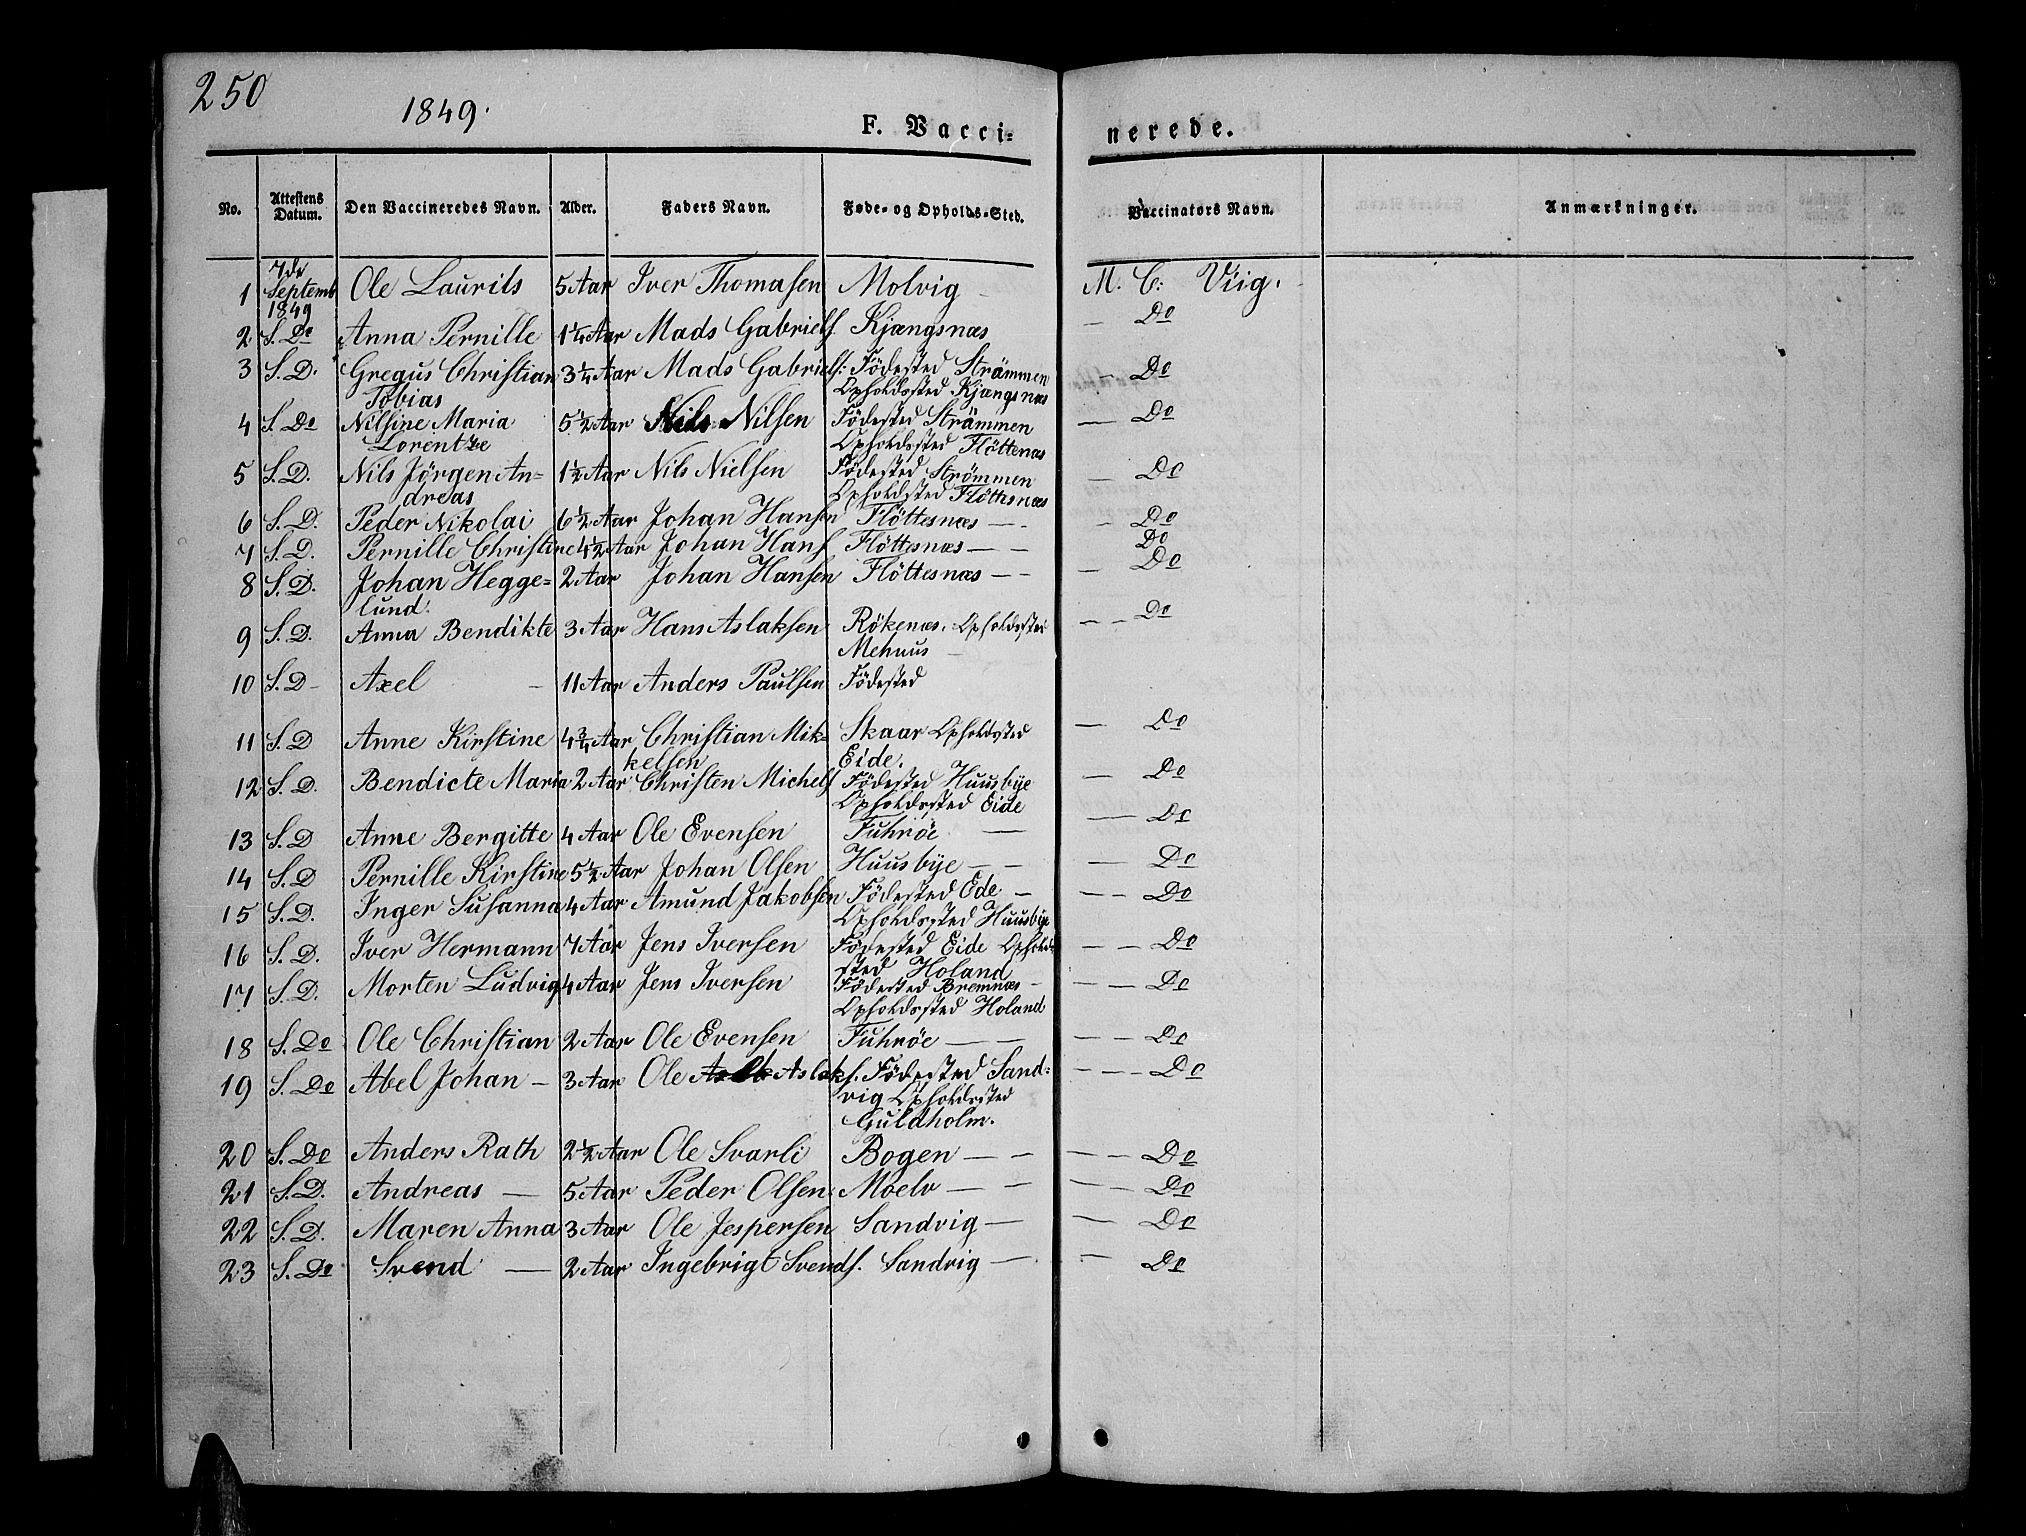 250
1849.
F. Vacci=
nerede.
No. Attestens Datum. Den Vaccineredes Navn. Alder. Faders Navn. Føde- og Opholds-Sted. Vaccinators Navn. Anmærkninger.
1 7de Septemb 1849 Ole Laurits 5 Aar Iver Thomasen Molvig – M. C: Viig.
2 S. Do Anna Pernille 1¼ Aar Mads Gabriels. Kjængsnæs – Do
3 S. D. Gregus Christian 3¼ Aar Mads Gabriels: Födested Strämmen – Do
Tobias Opholdssted Kjængsnæs
4 S. Do Nilsine Maria 5½ Aar Nils Nilsen Födested Strämmen — Do
Lorentze Opholdssted Flöttenæs
5 S. D. Nils Jörgen An= 1½ Aar Nils Nielsen Födested Strömmen – Do
dreas Opholdsted Flöthsnæs
6 S. D. Peder Nikolai 6½ Aar Johan Hansen Flöttesnæs — – Do
7 S. D. Pernille Christine 4½ Aar Johan Hans. Flöttesnæs — – Do
8 S. D. Johan Hegge= 2 Aar Johan Hansen Flöttesnæs – – – Do
lund.
9 S. D. Anna Bendikte 3 Aar Hans Aslaksen Rökenæs. Opholdssted – – Do
Mehuus –
10 S. D – Axel – 11 Aar Anders Paulsen Födested
11 S. D Anne Kirstine 4¾ Aar Christian Mik= Skaar Opholdsted — Do
kelsen Eide.
12 S. D. Bendicte Maria 2 Aar Christen Michels. Födested Huusbye — Do
Opholdssted Eide
13 S. D Anne Bergitte 4 Aar Ole Evensen Fuhröe — — Do
14 S. D Pernille Kirstine 5½ Aar Johan Olsen Huusbye – – — Do
15 S. D. Inger Susanna 4 Aar Amund Jakobsen Födested Ede – — – Do
Opholdssted Huusbye
16 S. D. Iver Hermann 7 Aar Jens Iversen Födested Eide Opholds – – Do
sted Holand
17 S. D. Morten Ludvig 4 Aar Jens Iversen Födested Bremnæs – – – Do
Opholdssted Holand
18 S. Do Ole Christian 2 Aar Ole Evensen Fuhröe — — – – Do
19 S. Do Abel Johan – 3 Aar Ole Aslaks. Födested Sand= – – – Do
vig Opholdssted
Guldholm.
20 S. Do Anders Rath 2½ Aar Ole Svarli Bogen — – — – Do
21 S. D. Andreas — 5 Aar Peder Olsen Moelv — – — – Do
22 S. D. Maren Anna 3 Aar Ole Jespersen Sandvig — — Do
23 S. Do Svend — 2 Aar Ingebrigt Svends. Sandvig — – Do